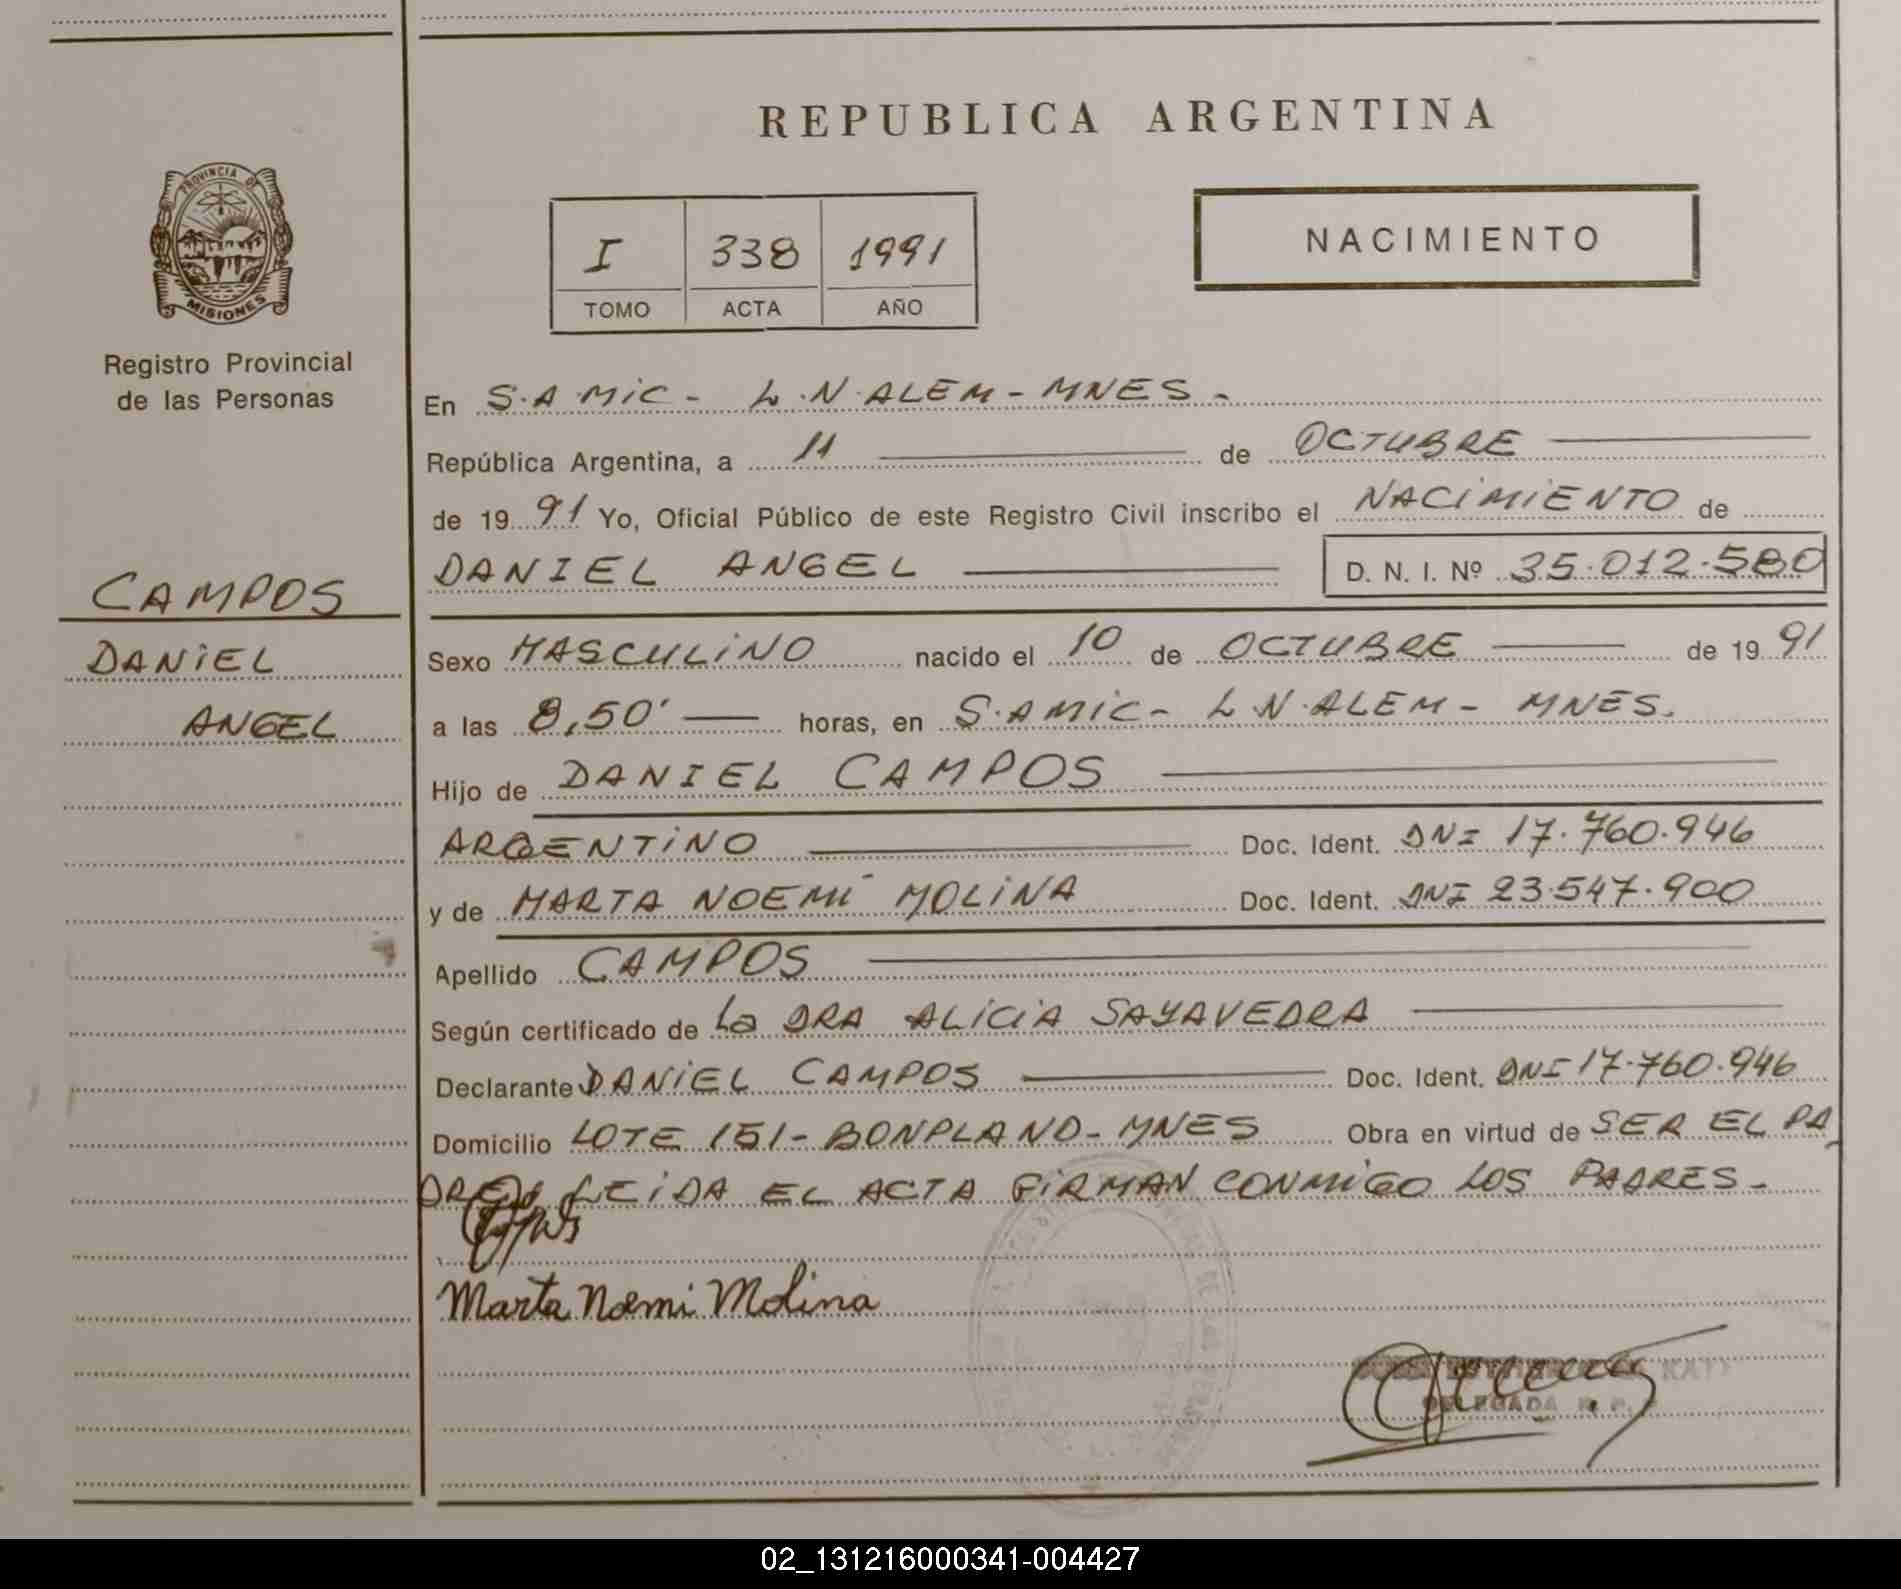 REPUBLICA ARGENTINA
PROVINCIA DE
MISIONES
Registro Provincial
de las Personas
I 338 1991
TOMO ACTA AÑO
NACIMIENTO
En S.A MiC - L.N.ALEM - MNES -
República Argentina, a 11 de OCTUBRE
de 1991 Yo, Oficial Público de este Registro Civil inscribo el NACIMIENTO de
DANIEL ANGEL D. N. I. Nº 35.012.580
CAMPOS
DANIEL
ANGEL
Sexo MASCULINO nacido el 10 de OCTUBRE de 1991
a las 8,50' horas, en S.A MiC - L.N.ALEM - MNES.
Hijo de DANIEL CAMPOS
ARGENTINO Doc. Ident. DNI 17.760.946
y de MARTA NOEMÍ MOLINA Doc. Ident. DNI 23.547.900
Apellido CAMPOS
Según certificado de La DRA ALICIA SAYAVEDRA
Declarante DANIEL CAMPOS Doc. Ident. DNI 17.760.946
Domicilio LOTE 151 - BONPLAND - MNES Obra en virtud de SER EL PA
DRE. LEIDA EL ACTA FIRMAN CONMIGO LOS PADRES -
Marta Noemi Molina
DELEGADA R. P.
02_131216000341-004427